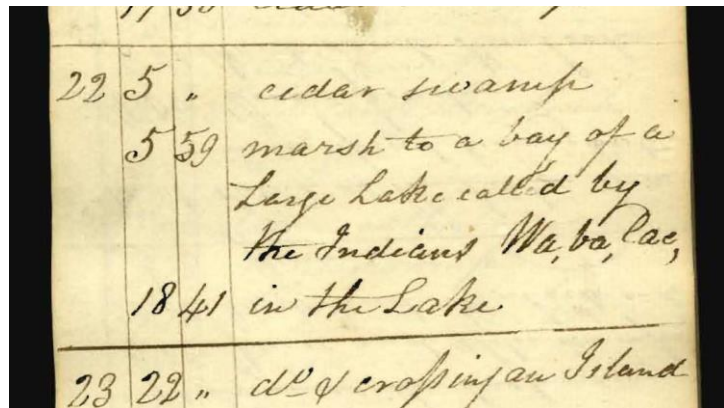 22 5 " cedar swamp
5 59 marsh to a bay of a
Large Lake called by
the Indians Wa,ba,Cac,
18 41 in the Lake
23 22 " do & crossing an Island